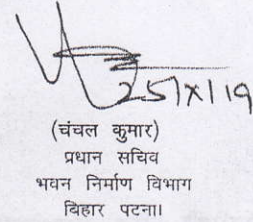 25/X/19
(चंचल कुमार)
प्रधान सचिव
भवन निर्माण विभाग
बिहार पटना।